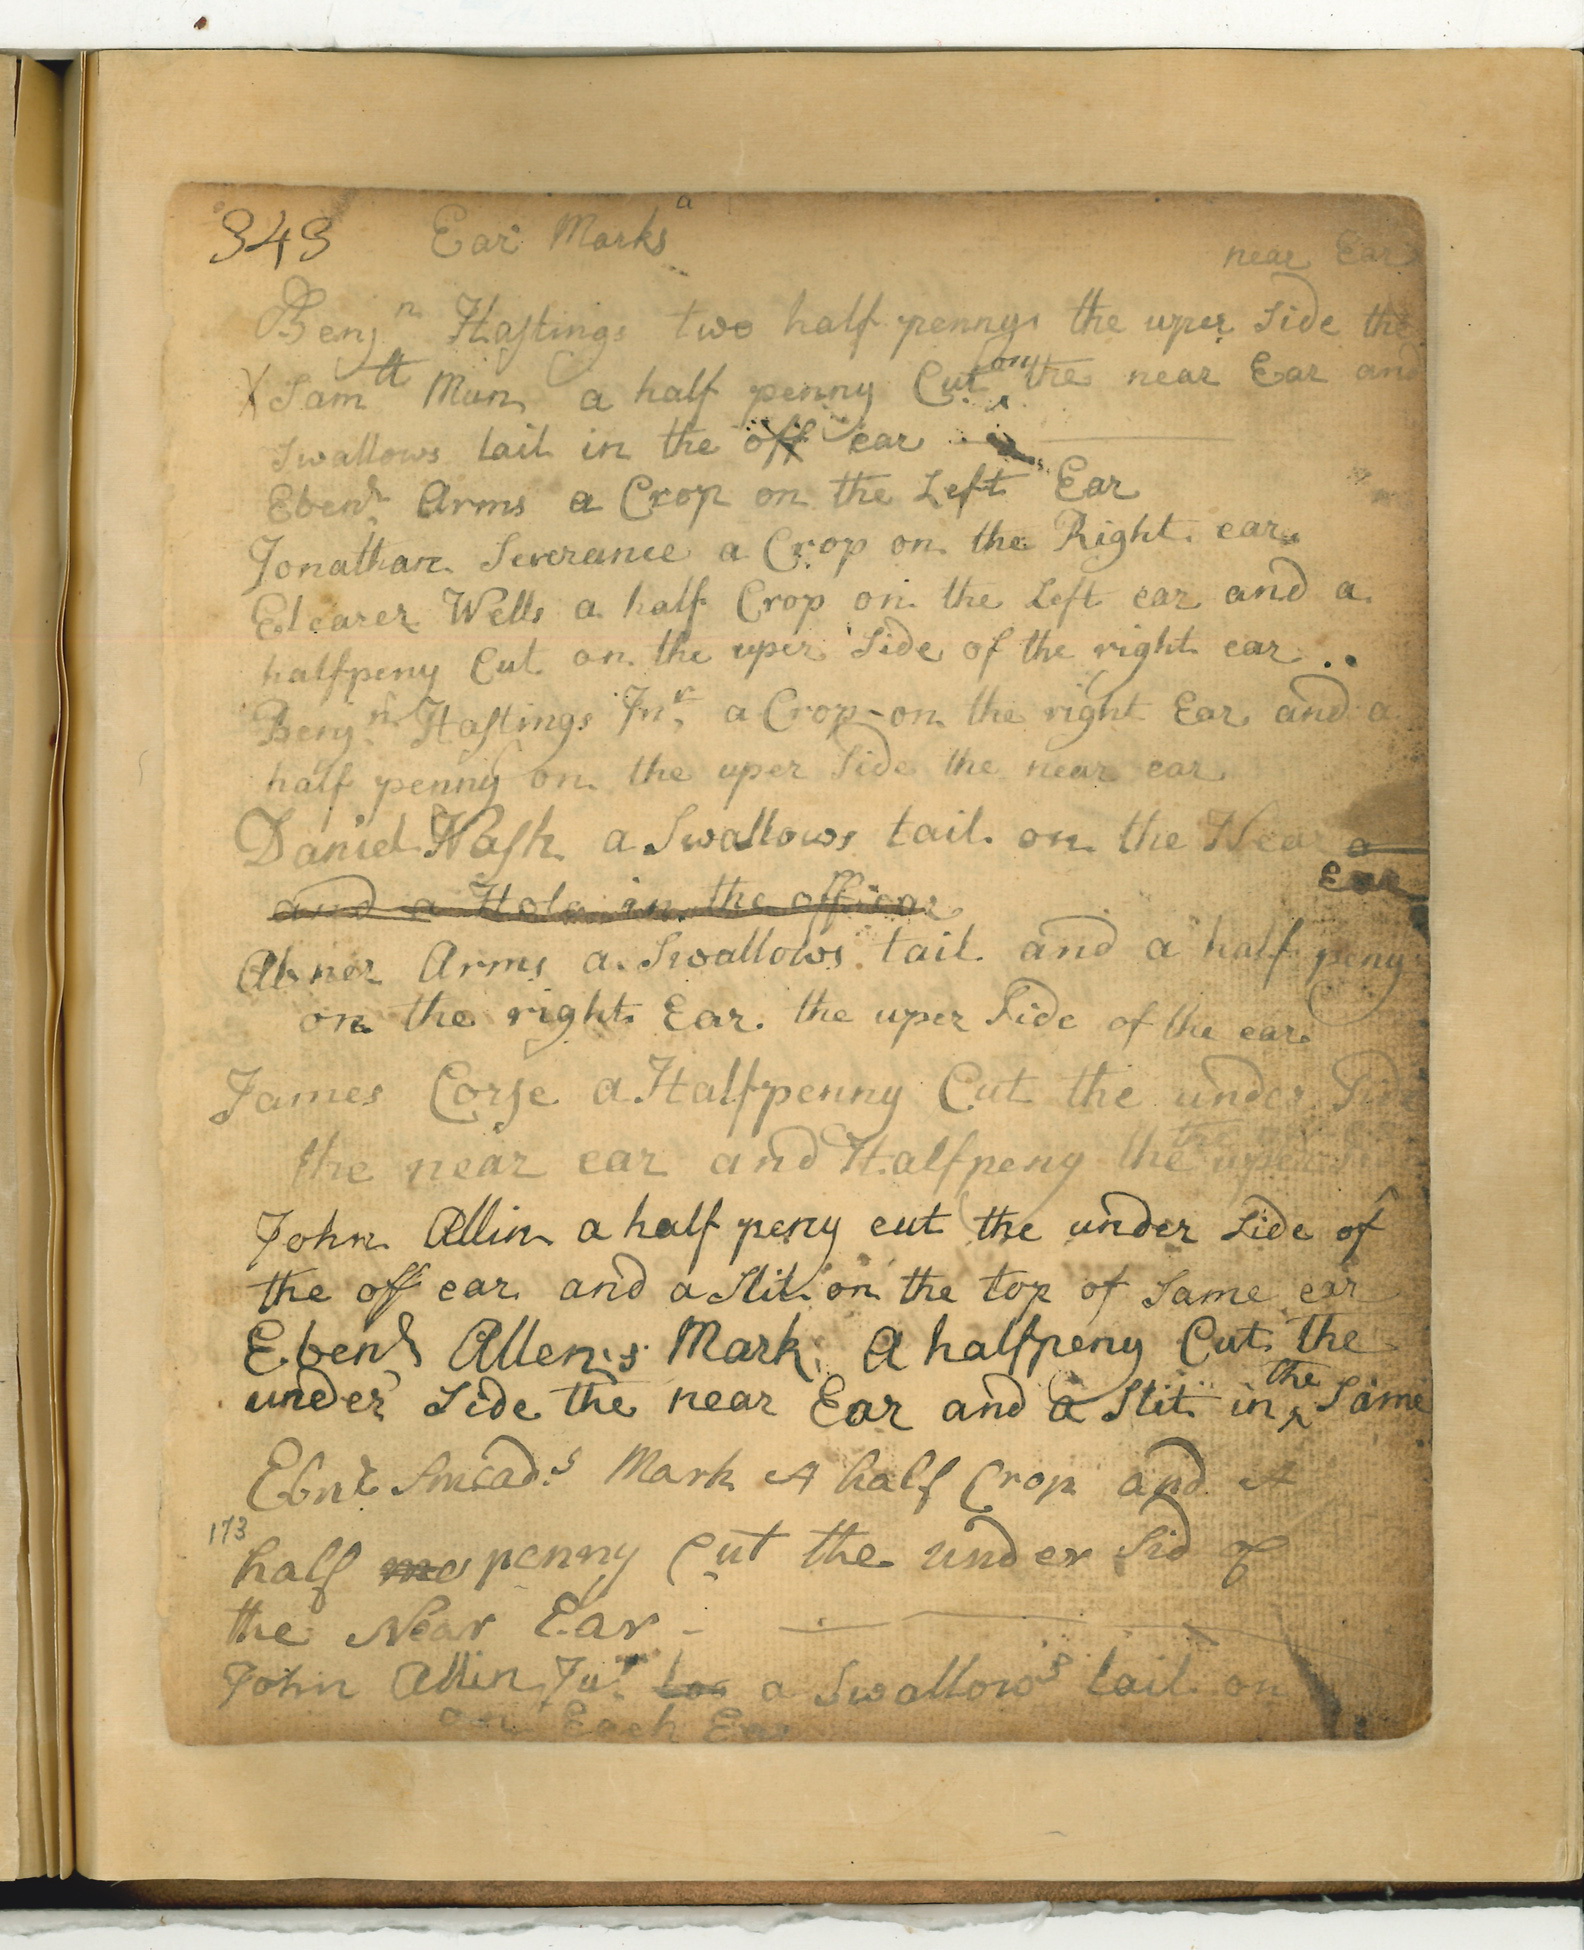 343 Ear Marks a
near Ear
Benjn Hastings two half pennys the uper Side the
X Samll Mun a half penny Cut on the near Ear and
Swallows tail in the off ear
Ebenr Arms a Crop on the Left Ear
Jonathan Severance a Crop on the Right ear
Eleazer Wells a half Crop on the Left ear and a
halfpeny Cut on the uper Side of the right ear
Benjn Hastings Jnr a Crop on the right Ear and a
half penny on the uper Side the near ear
Daniel Nash a Swallows tail on the Near a
Ear
and a Hole in the off ear
Abner Arms a Swallows tail and a half peny
on the right Ear the uper Side of the ear
James Corse a Halfpenny Cut the under Side
the near ear and Halfpeny the uper
John Allin a half peny cut the under side of
the off ear and a Slit on the top of Same ear
Ebenr Allen's Mark A halfpeny Cut the
under Side the near Ear and a Slit in the Same
Ebnr Smeads Mark A half Crop and A
173
half penny Cut the under Sid of
the Near Ear
John Allin Jur a Swallows tail on
on Each Ear